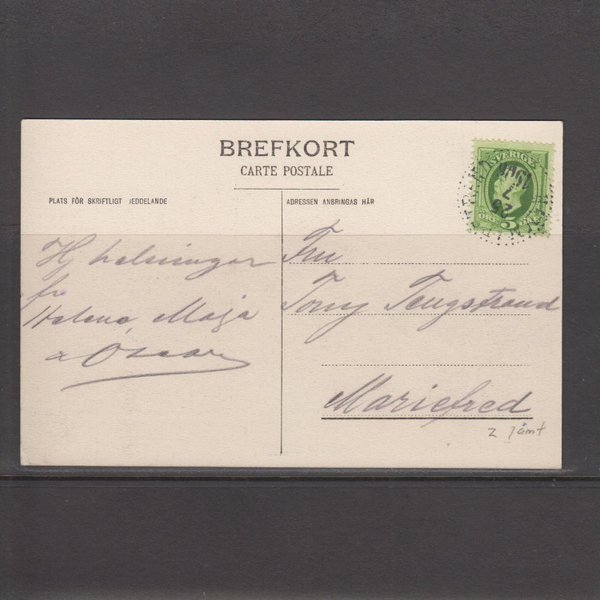 BREFKORT
CARTE POSTALE
PLATS FÖR SKRIFTLIGT MEDDELANDE
ADRESSEN ANBRINGAS HÄR
H helsningar
fr
Helena, Maja
& Oscar
Fru
Tony Tengstrand
Mariefred
SVERIGE
5
ÖRE
25
7